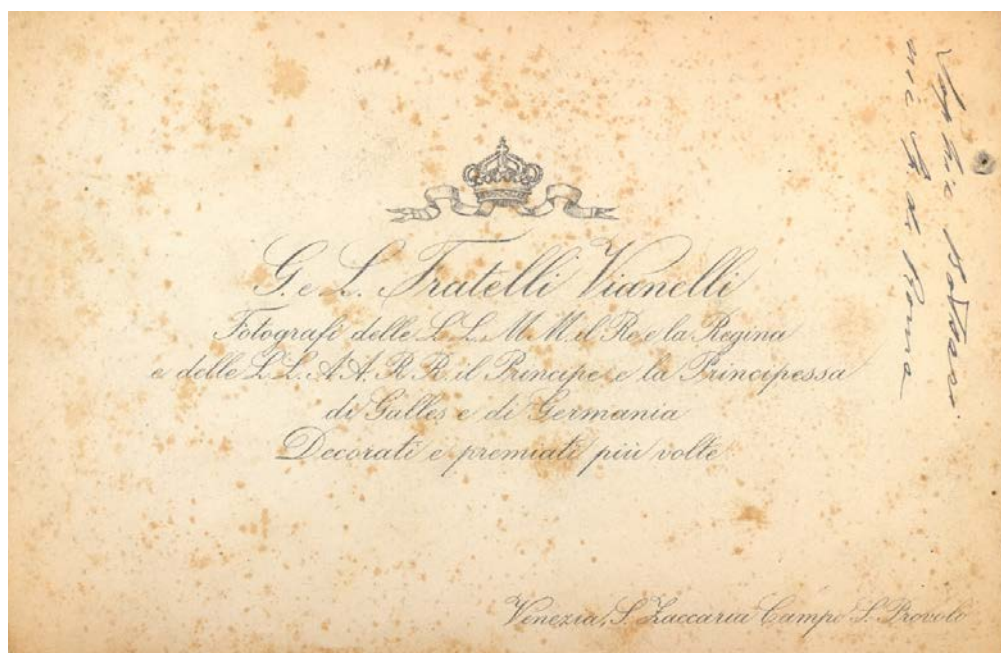 G. e L. Fratelli Vianelli
Fotografi delle L.L. M.M. il Re e la Regina
e delle L.L. A.A. R.R. il Principe e la Principessa
di Galles e di Germania
Decorati e premiati più volte
Venezia, S. Zaccaria Campo S. Provolo
di Roma